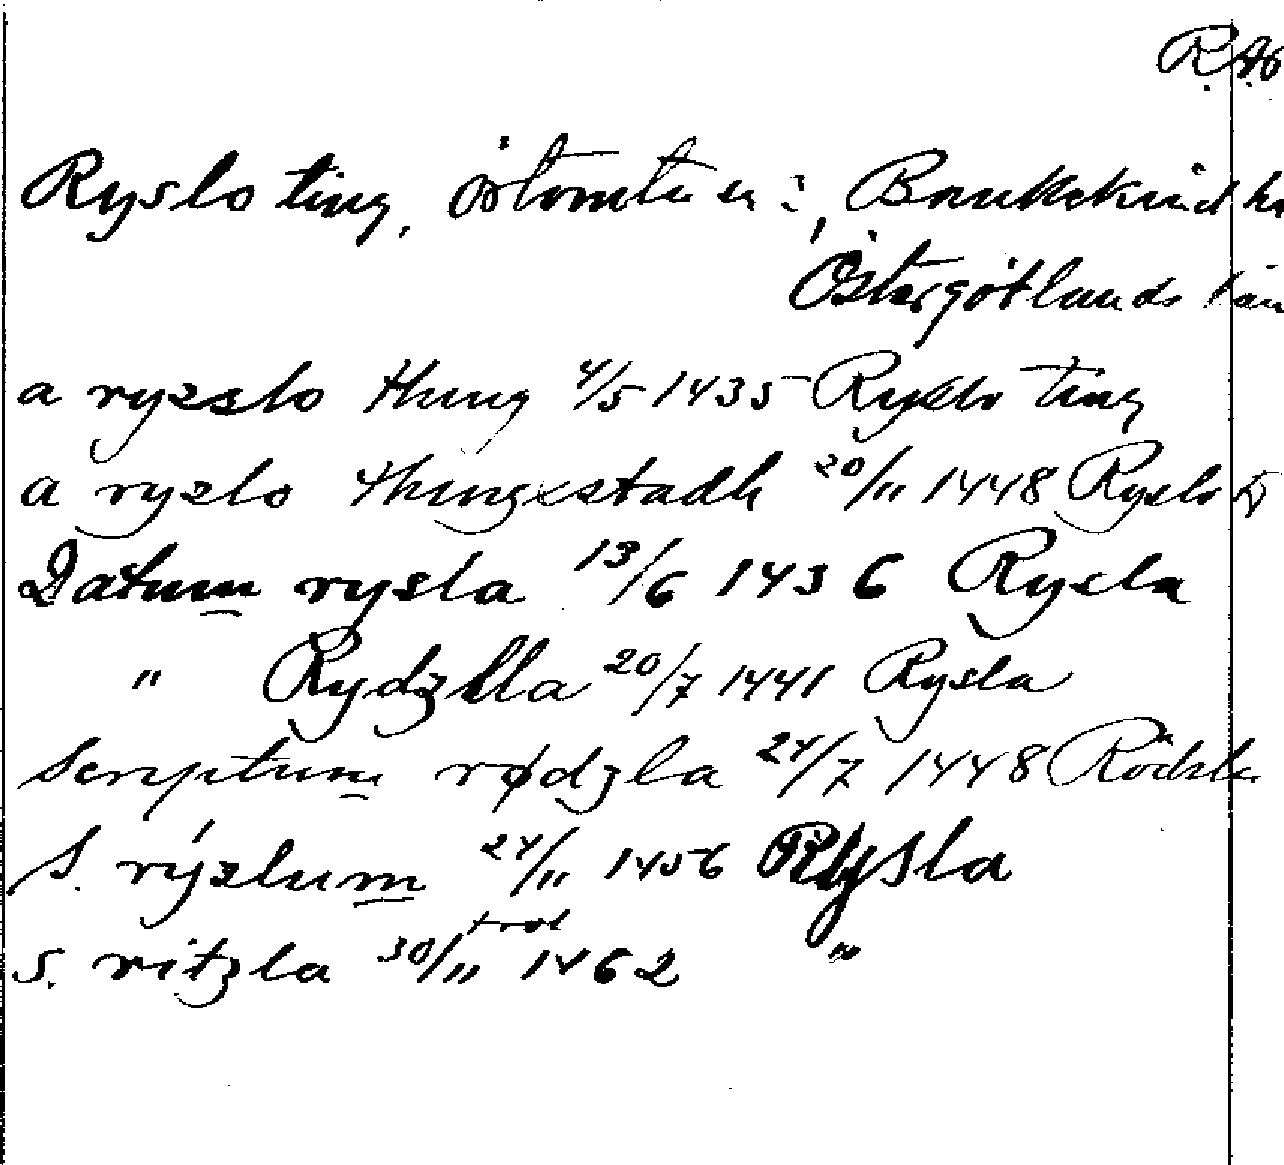 R.A.
Ryslo ting, Bankekind hd
Östergötlands län
a ryzslo thung 4/5 1435 Ryslo ting
a ryzlo thingxstadh 20/11 1448 Ryslo
Datum rysla 13/6 1436 Rysla
" Rydzlla 20/7 1441 Rysla
Scriptum rødzla 24/7 1448 Rödsla
S. rýzlum 24/11 1456 Rysla
S. ritzla 30/11 trol 1462 "